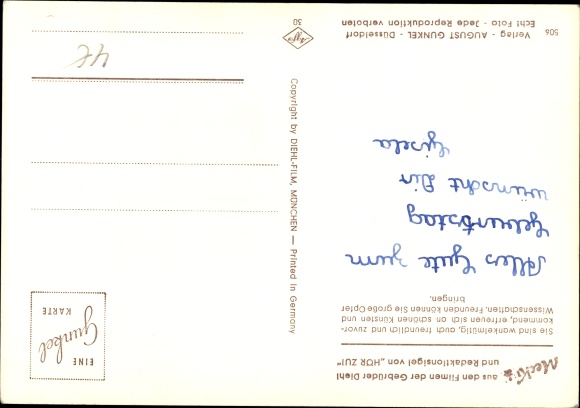 Mecki aus den Filmen der Gebrüder Diehl
und Redaktionsigel von „HÖR ZU!"
Sie sind wankelmütig, auch freundlich und zuvor-
kommend, erfreuen sich an schönen Künsten und
Wissenschaften. Freunden können Sie große Opfer
bringen.
Alles Gute zum
Geburtstag
wünscht Dir
Gisela
506
Verlag - AUGUST GUNKEL - Düsseldorf
Echt Foto - Jede Reproduktion verboten
Copyright by DIEHL-FILM, MÜNCHEN — Printed in Germany
EINE
Gunkel
KARTE
Agfa
30